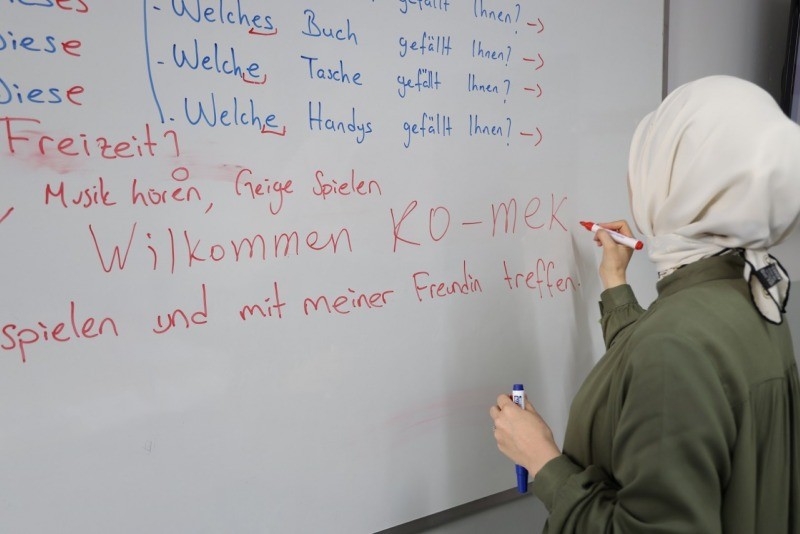 gefällt Ihnen? →
ieses - Welches Buch gefällt Ihnen? →
Diese - Welche Tasche gefällt Ihnen? →
Diese - Welche Handys gefällt Ihnen? →
Freizeit?
Musik hören, Geige Spielen
Wilkommen KO-meK
spielen und mit meiner Freundin treffen.